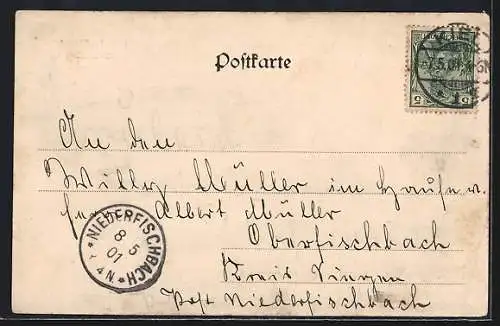 Postkarte
5
5
7.5.01
An den
Willy Müller im Hause v.
Albert Müller
Oberfischbach
Kreis Siegen
Post Niederfischbach
*NIEDERFISCHBACH*
8 5
01
N